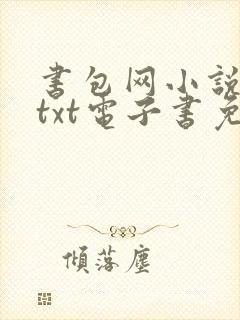 书包网小說
txt電子書免
傾落塵